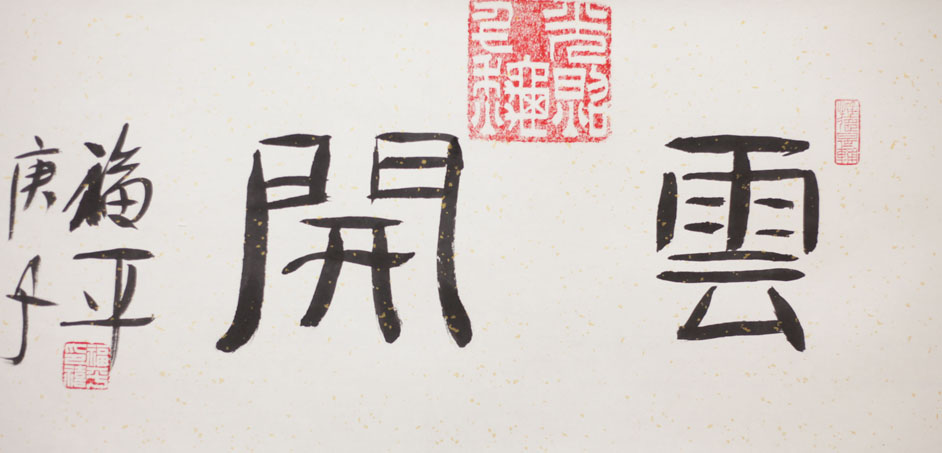 雲開
庚子
福平